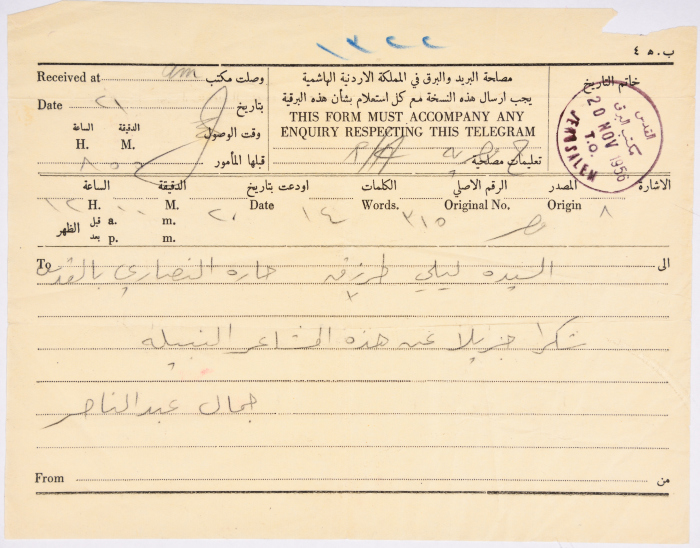 ١٣٢٢
ب. ه ٤
Received at am وصلت مكتب
مصلحة البريد والبرق في المملكة الاردنية الهاشمية
خاتم التاريخ
Date ٢١ بتاريخ
يجب ارسال هذه النسخة مع كل استعلام بشأن هذه البرقية
الساعة الدقيقة وقت الوصول
H. M.
THIS FORM MUST ACCOMPANY ANY
ENQUIRY RESPECTING THIS TELEGRAM
قبلها المأمور
تعليمات مصلحية
القدس
مكتب البرق
20 NOV 1956
T.O.
JERUSALEM
الاشارة المصدر الرقم الاصلي الكلمات اودعت بتاريخ الدقيقة الساعة
٨ Origin مصر Original No. ٣١٥ Words. ١٤ Date ٢٠ M. H. ١٢
الظهر قبل a. m.
بعد p. m.
To السيده ليلي طرزي حاره النصاري بالقدس الى
شكرا جزيلا عن هذه المشاعر النبيله
جمال عبد الناصر
From من